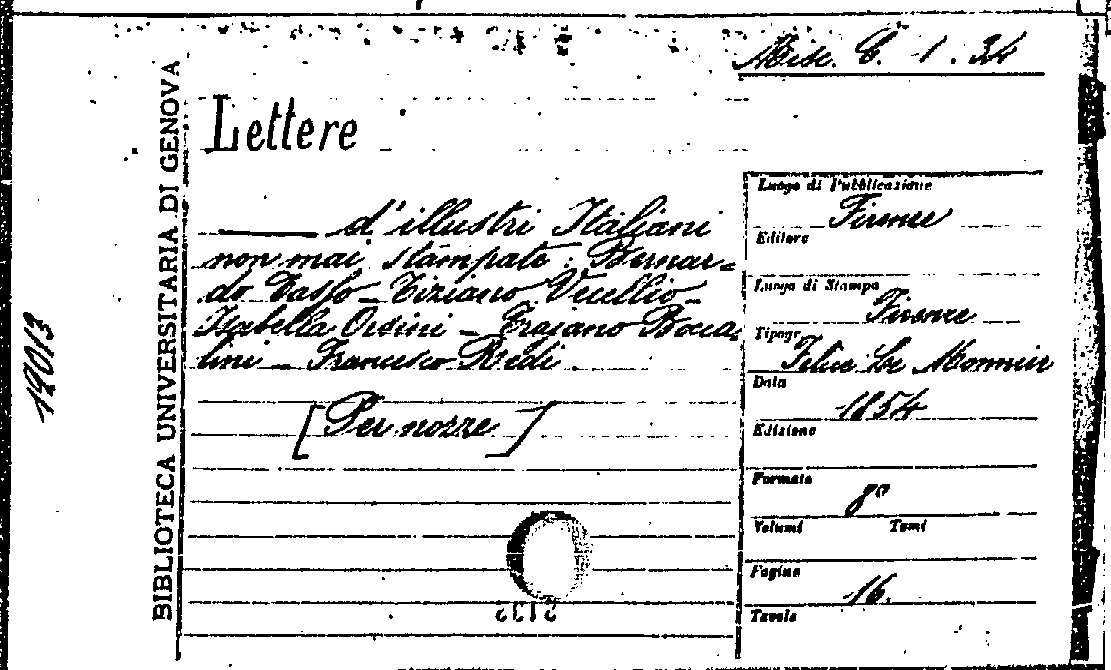 Misc. C. 1. 34
BIBLIOTECA UNIVERSITARIA DI GENOVA
19013
Lettere
d'illustri Italiani
non mai stampate: Bernar=
do Tasso _ Tiziano Vecellio _
Isabella Orsini _ Traiano Bocca=
lini _ Francesco Redi
[Per nozze]
Luogo di Pubblicazione
Firenze
Editore
Luogo di Stampa
Firenze
Tipogr.
Felice Le Monnier
Data
1854
Edizione
Formato
8°
Volumi Tomi
Pagine
16.
Tavole